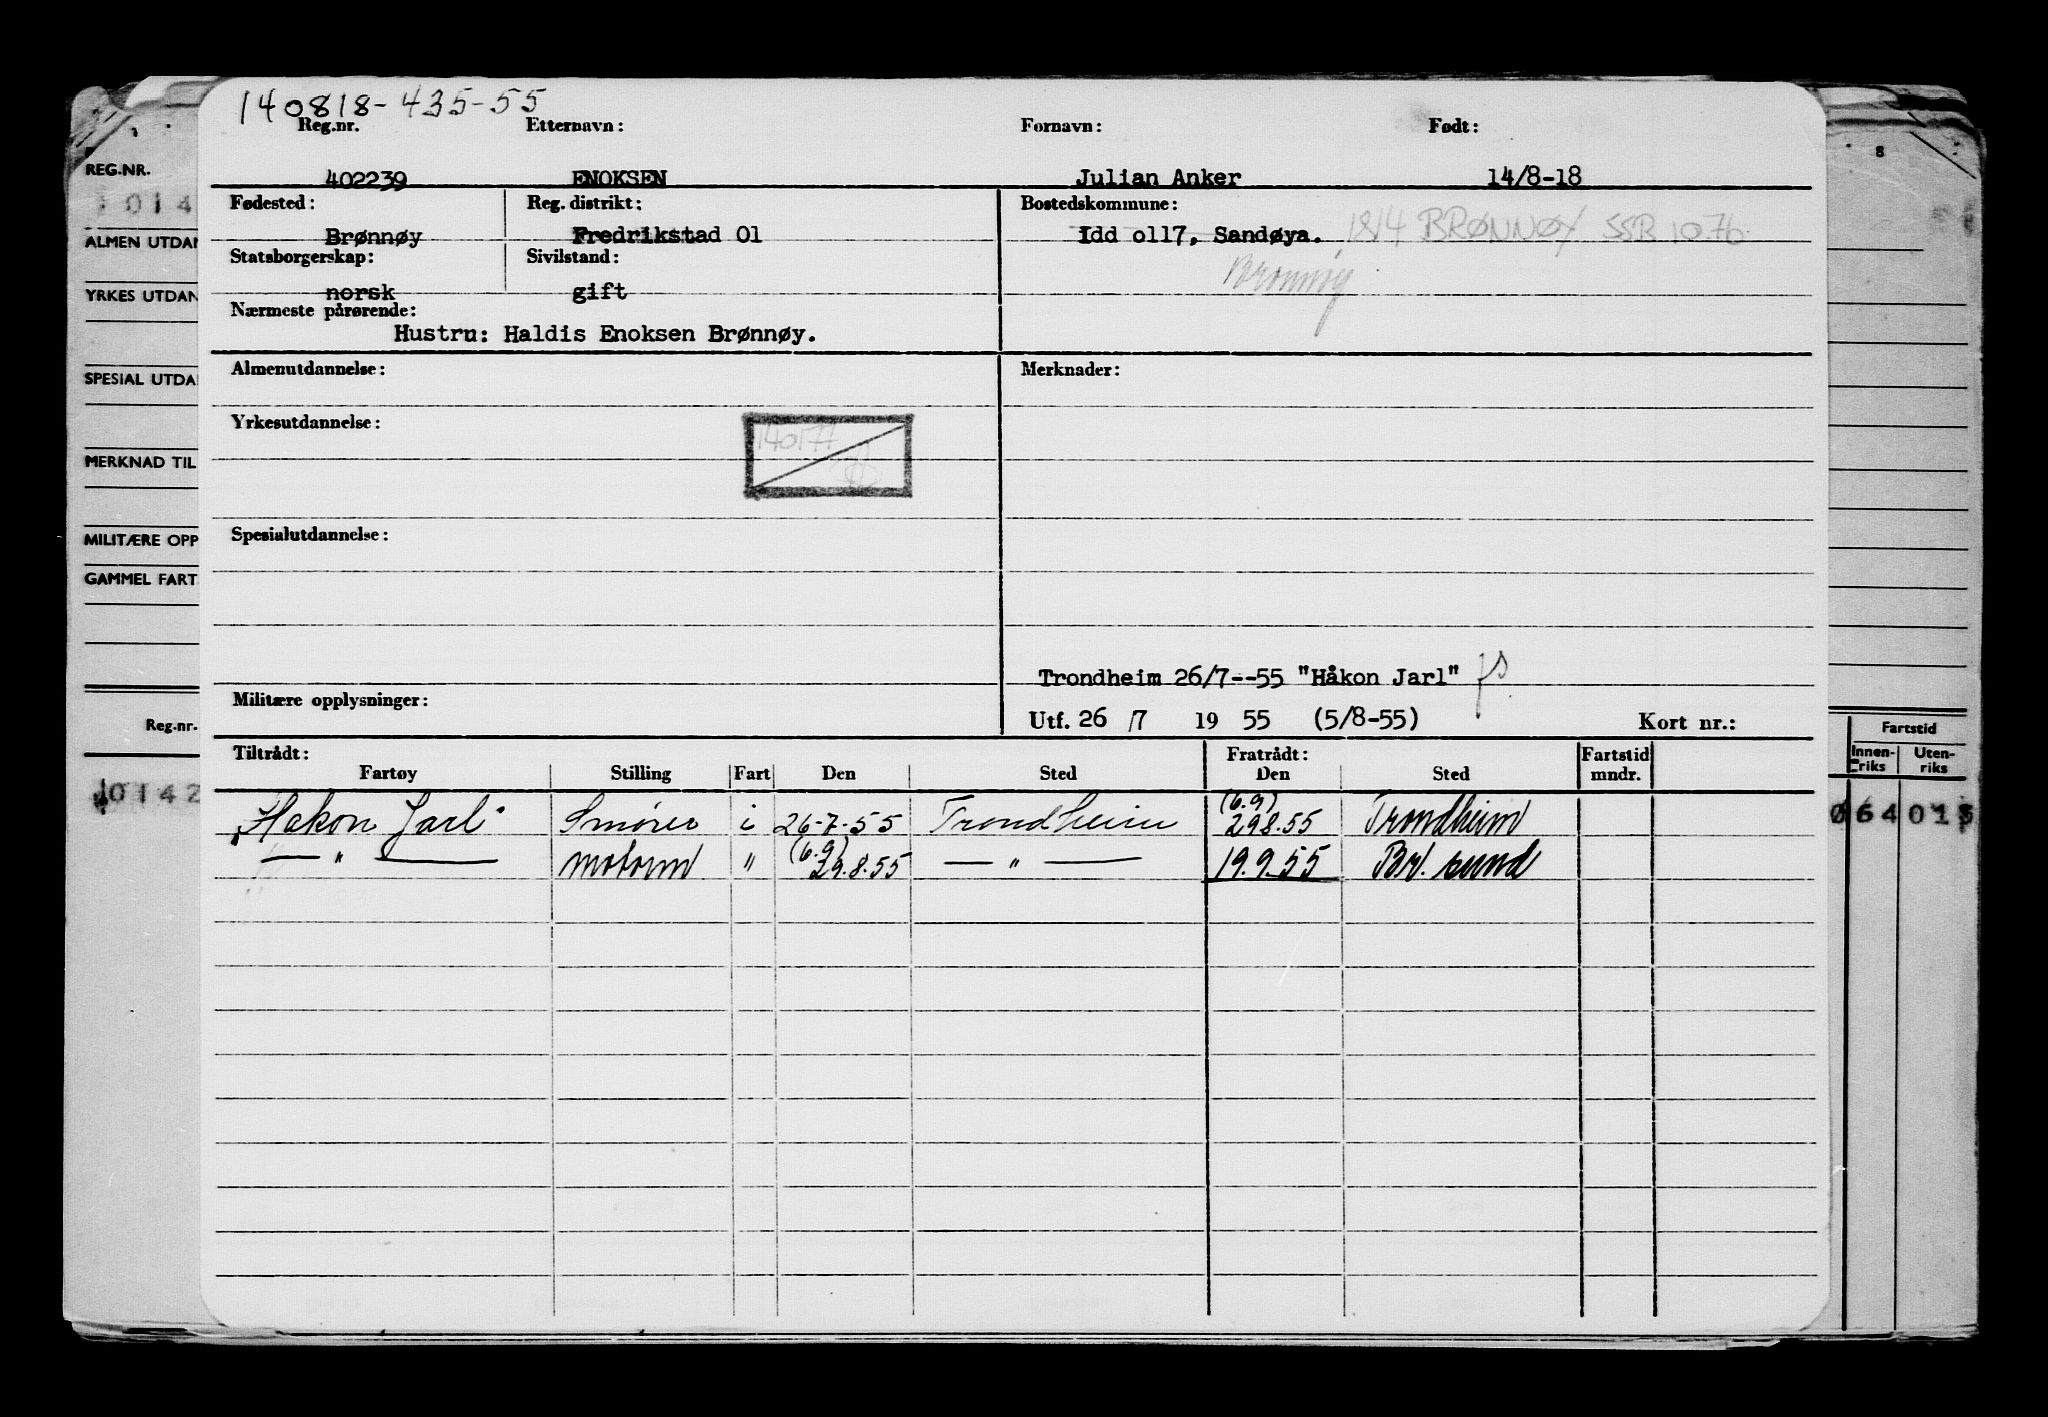 140818-435-55
Reg.nr. Etternavn: Fornavn: Født:
402239 ENOKSEN Julian Anker 14/8-18
Fødested: Reg. distrikt: Bostedskommune:
Brønnøy Fredrikstad 01 Idd o117, Sandøya. 1814 BRØNNØY SSB 10.76
Statsborgerskap: Sivilstand: Brønnøy
norsk gift
Nærmeste pårørende:
Hustru: Haldis Enoksen Brønnøy.
Almenutdannelse: Merknader:
Yrkesutdannelse:
140177
Spesialutdannelse:
Trondheim 26/7--55 "Håkon Jarl"
Militære opplysninger:
Utf. 26 /7 19 55 (5/8-55) Kort nr.:
Tiltrådt: Fratrådt: Fartstid
Fartøy Stilling Fart Den Sted Den Sted mndr.
"Håkon Jarl" Smører i 26-7-55 Trondheim (6.9) 29.8.55 Trondheim
— " — motorm " (6.9) 29.8.55 — " — 19.9.55 Br. sund
REG.NR.
014
ALMEN UTDAN
YRKES UTDAN
SPESIAL UTDA
MERKNAD TIL
MILITÆRE OPP
GAMMEL FART
Reg.nr.
0142
8
Fartstid
Innen- Uten-
riks riks
064 01